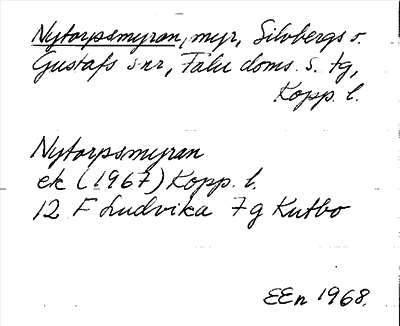 Nytorpsmyran, myr, Silvbergs o.
Gustafs snr, Falu doms. s. tg,
Kopp. l.
Nytorpsmyran
ek (1967) Kopp. l.
12 F Ludvika 7 g Kutbo
EEn 1968.